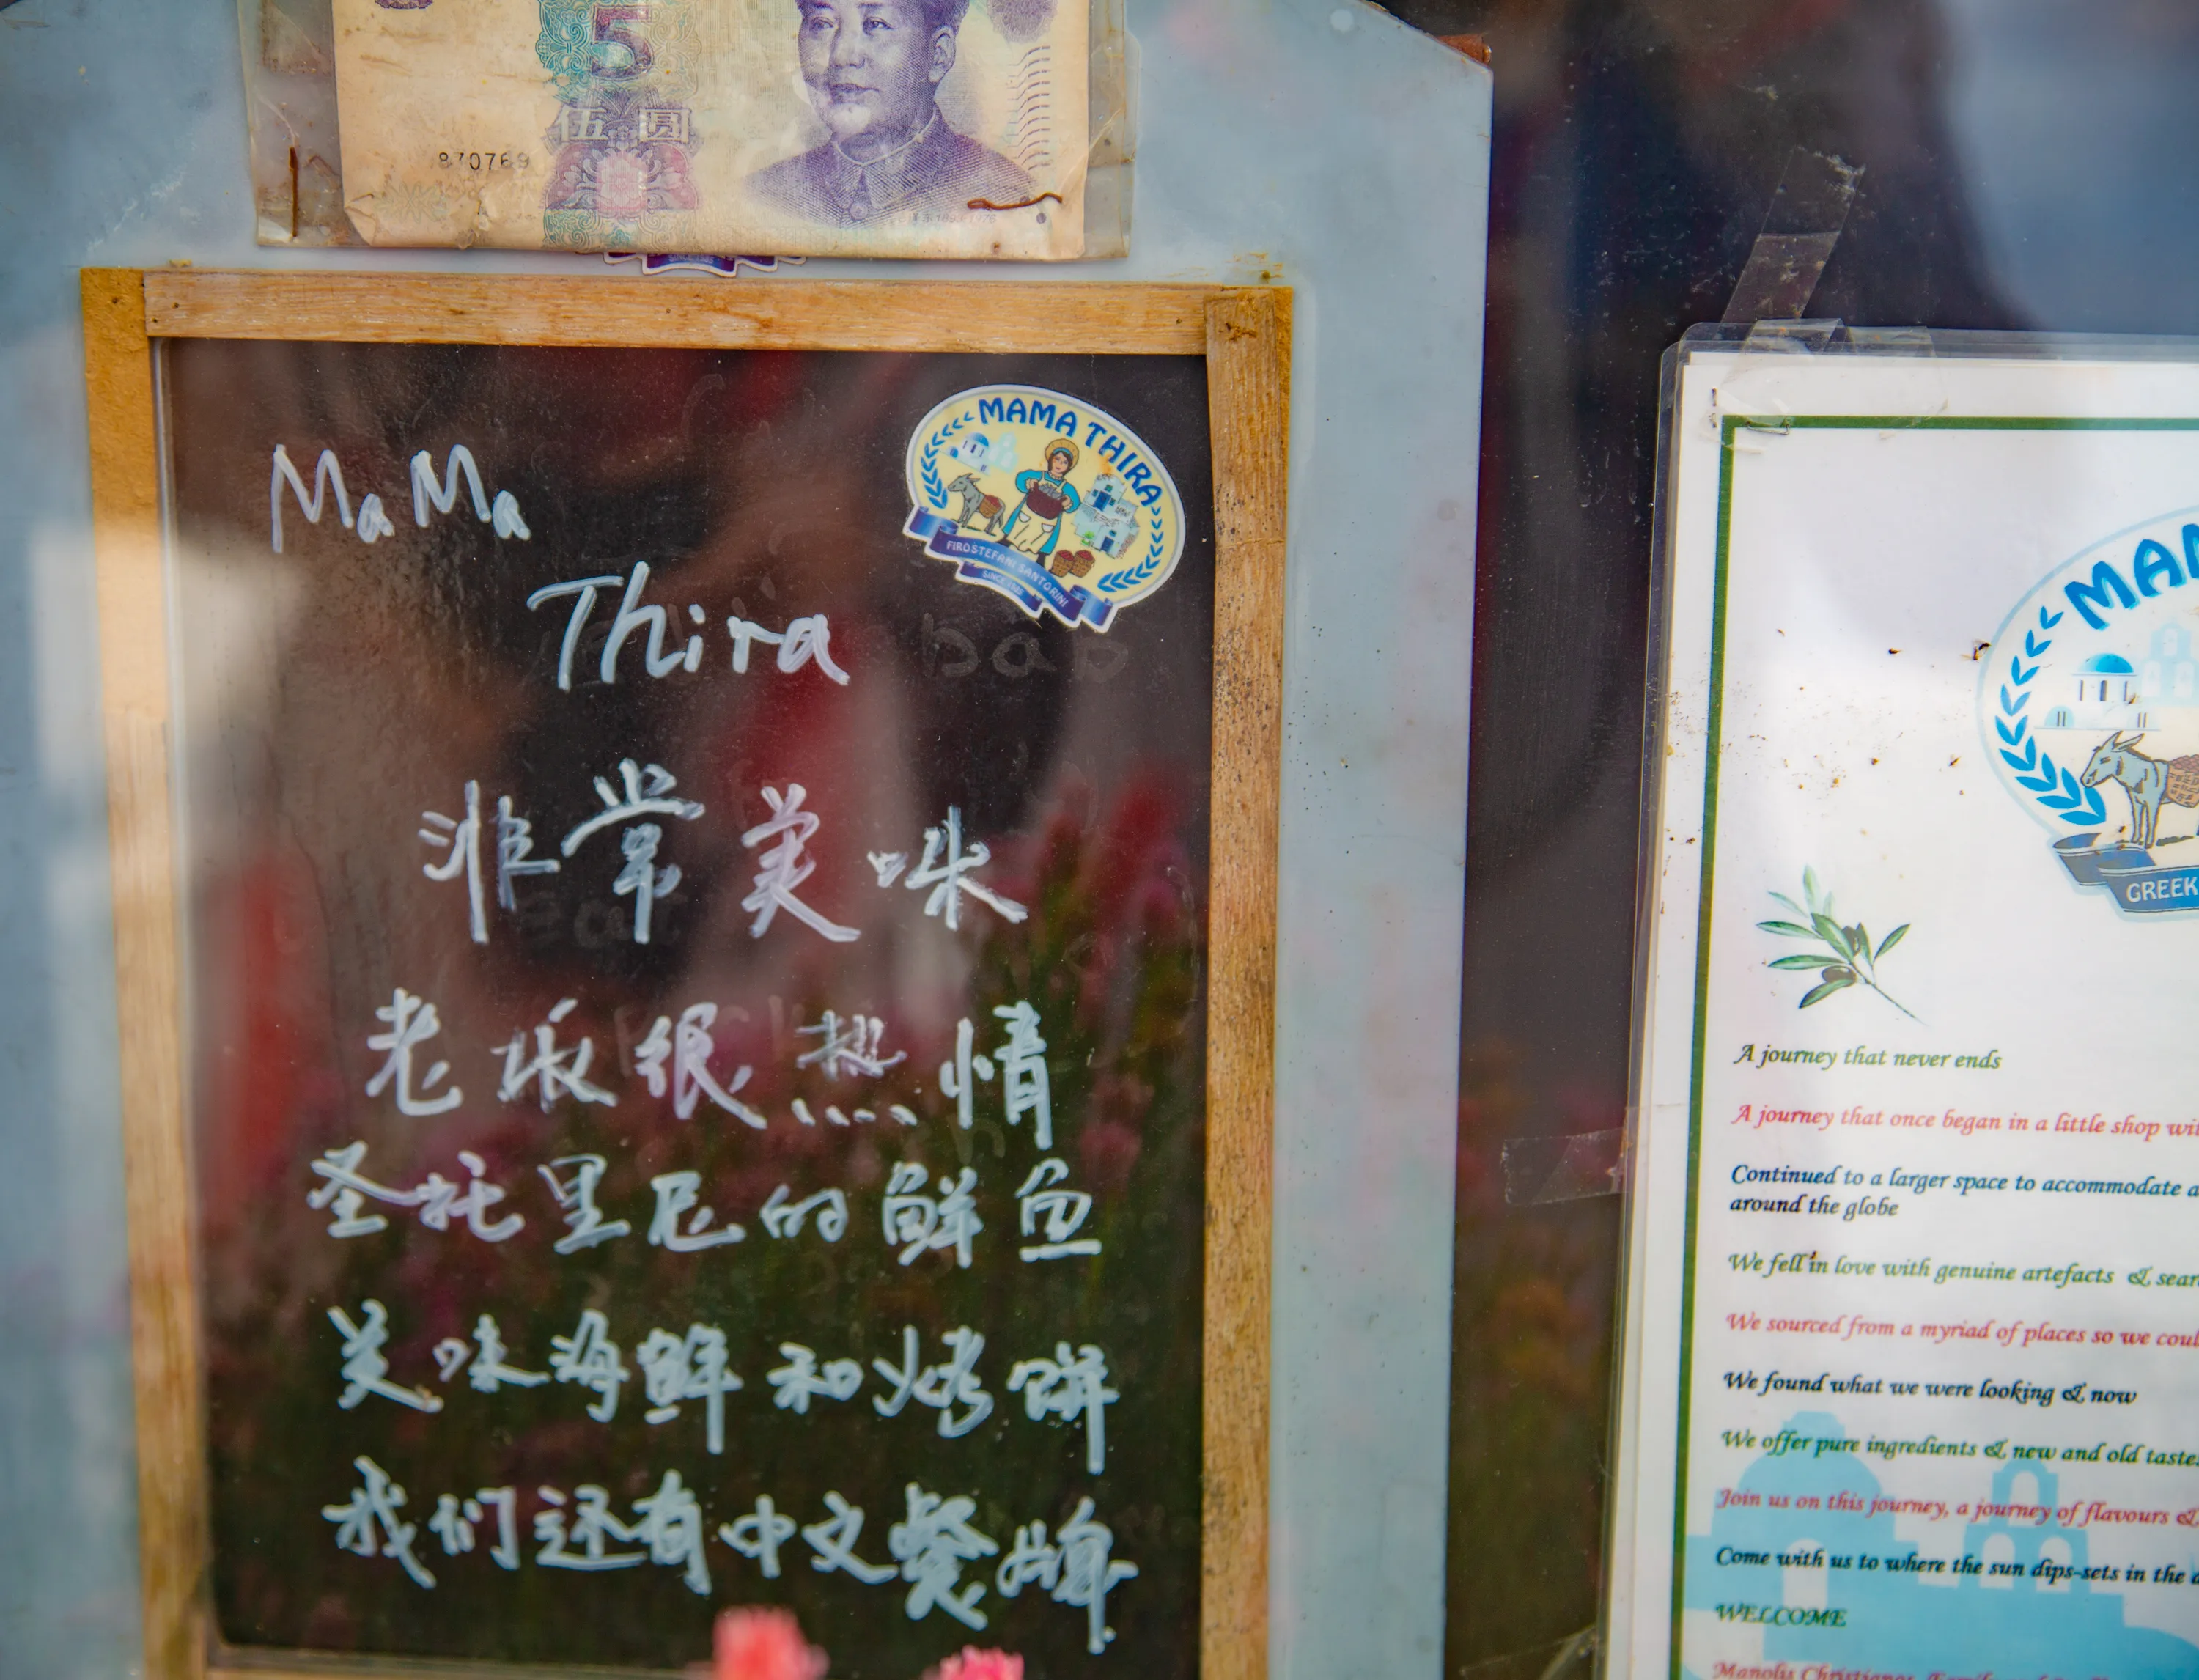 5
伍圆
870769
MaMa
Thira
MAMA THIRA
FIROSTEFANI SANTORINI
非常美味
老板很热情
圣托里尼的鲜鱼
美味海鲜和烤饼
我们还有中文餐牌
MAM
GREEK
A journey that never ends
A journey that once began in a little shop
Continued to a larger space to accommodate
around the globe
We fell in love with genuine artefacts &
We sourced from a myriad of places so we
We found what we were looking & now
We offer pure ingredients & new and old
Join us on this journey, a journey of flavours &
Come with us to where the sun dips-sets in the
WELCOME
Manolis